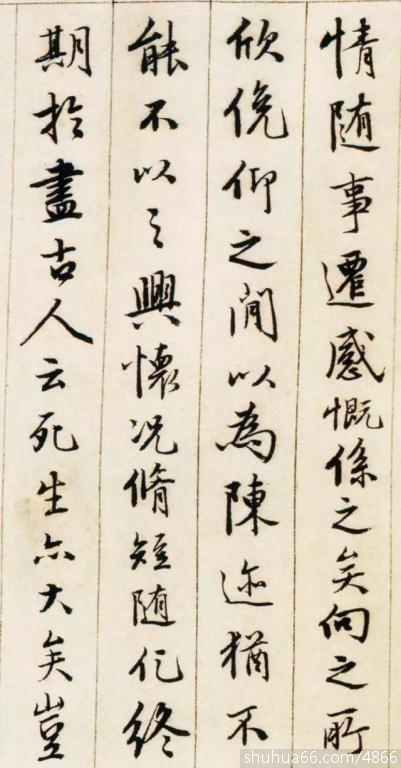 情随事遷感慨係之矣向之所
欣俛仰之間以為陳迹猶不
能不以之興懷況脩短随化終
期於盡古人云死生亦大矣豈
shuhua66.com/4866